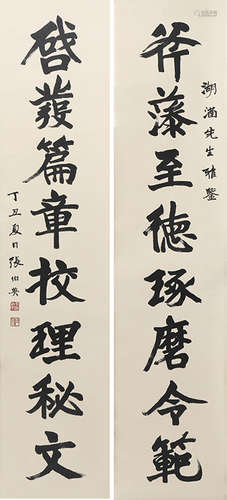 湖涵先生雅鑒
斧藻至徳琢磨令範
啓發篇章挍理秘文
丁丑夏日張伯英